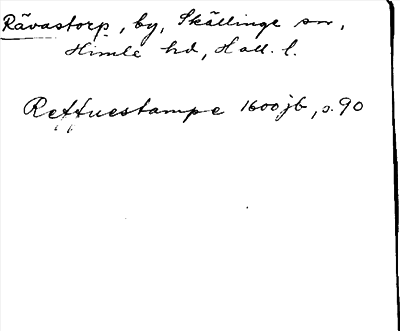 Rävastorp, by, Skällinge sn,
Himle hd, Hall. l.
Reffuestampe 1600 jb, s. 90